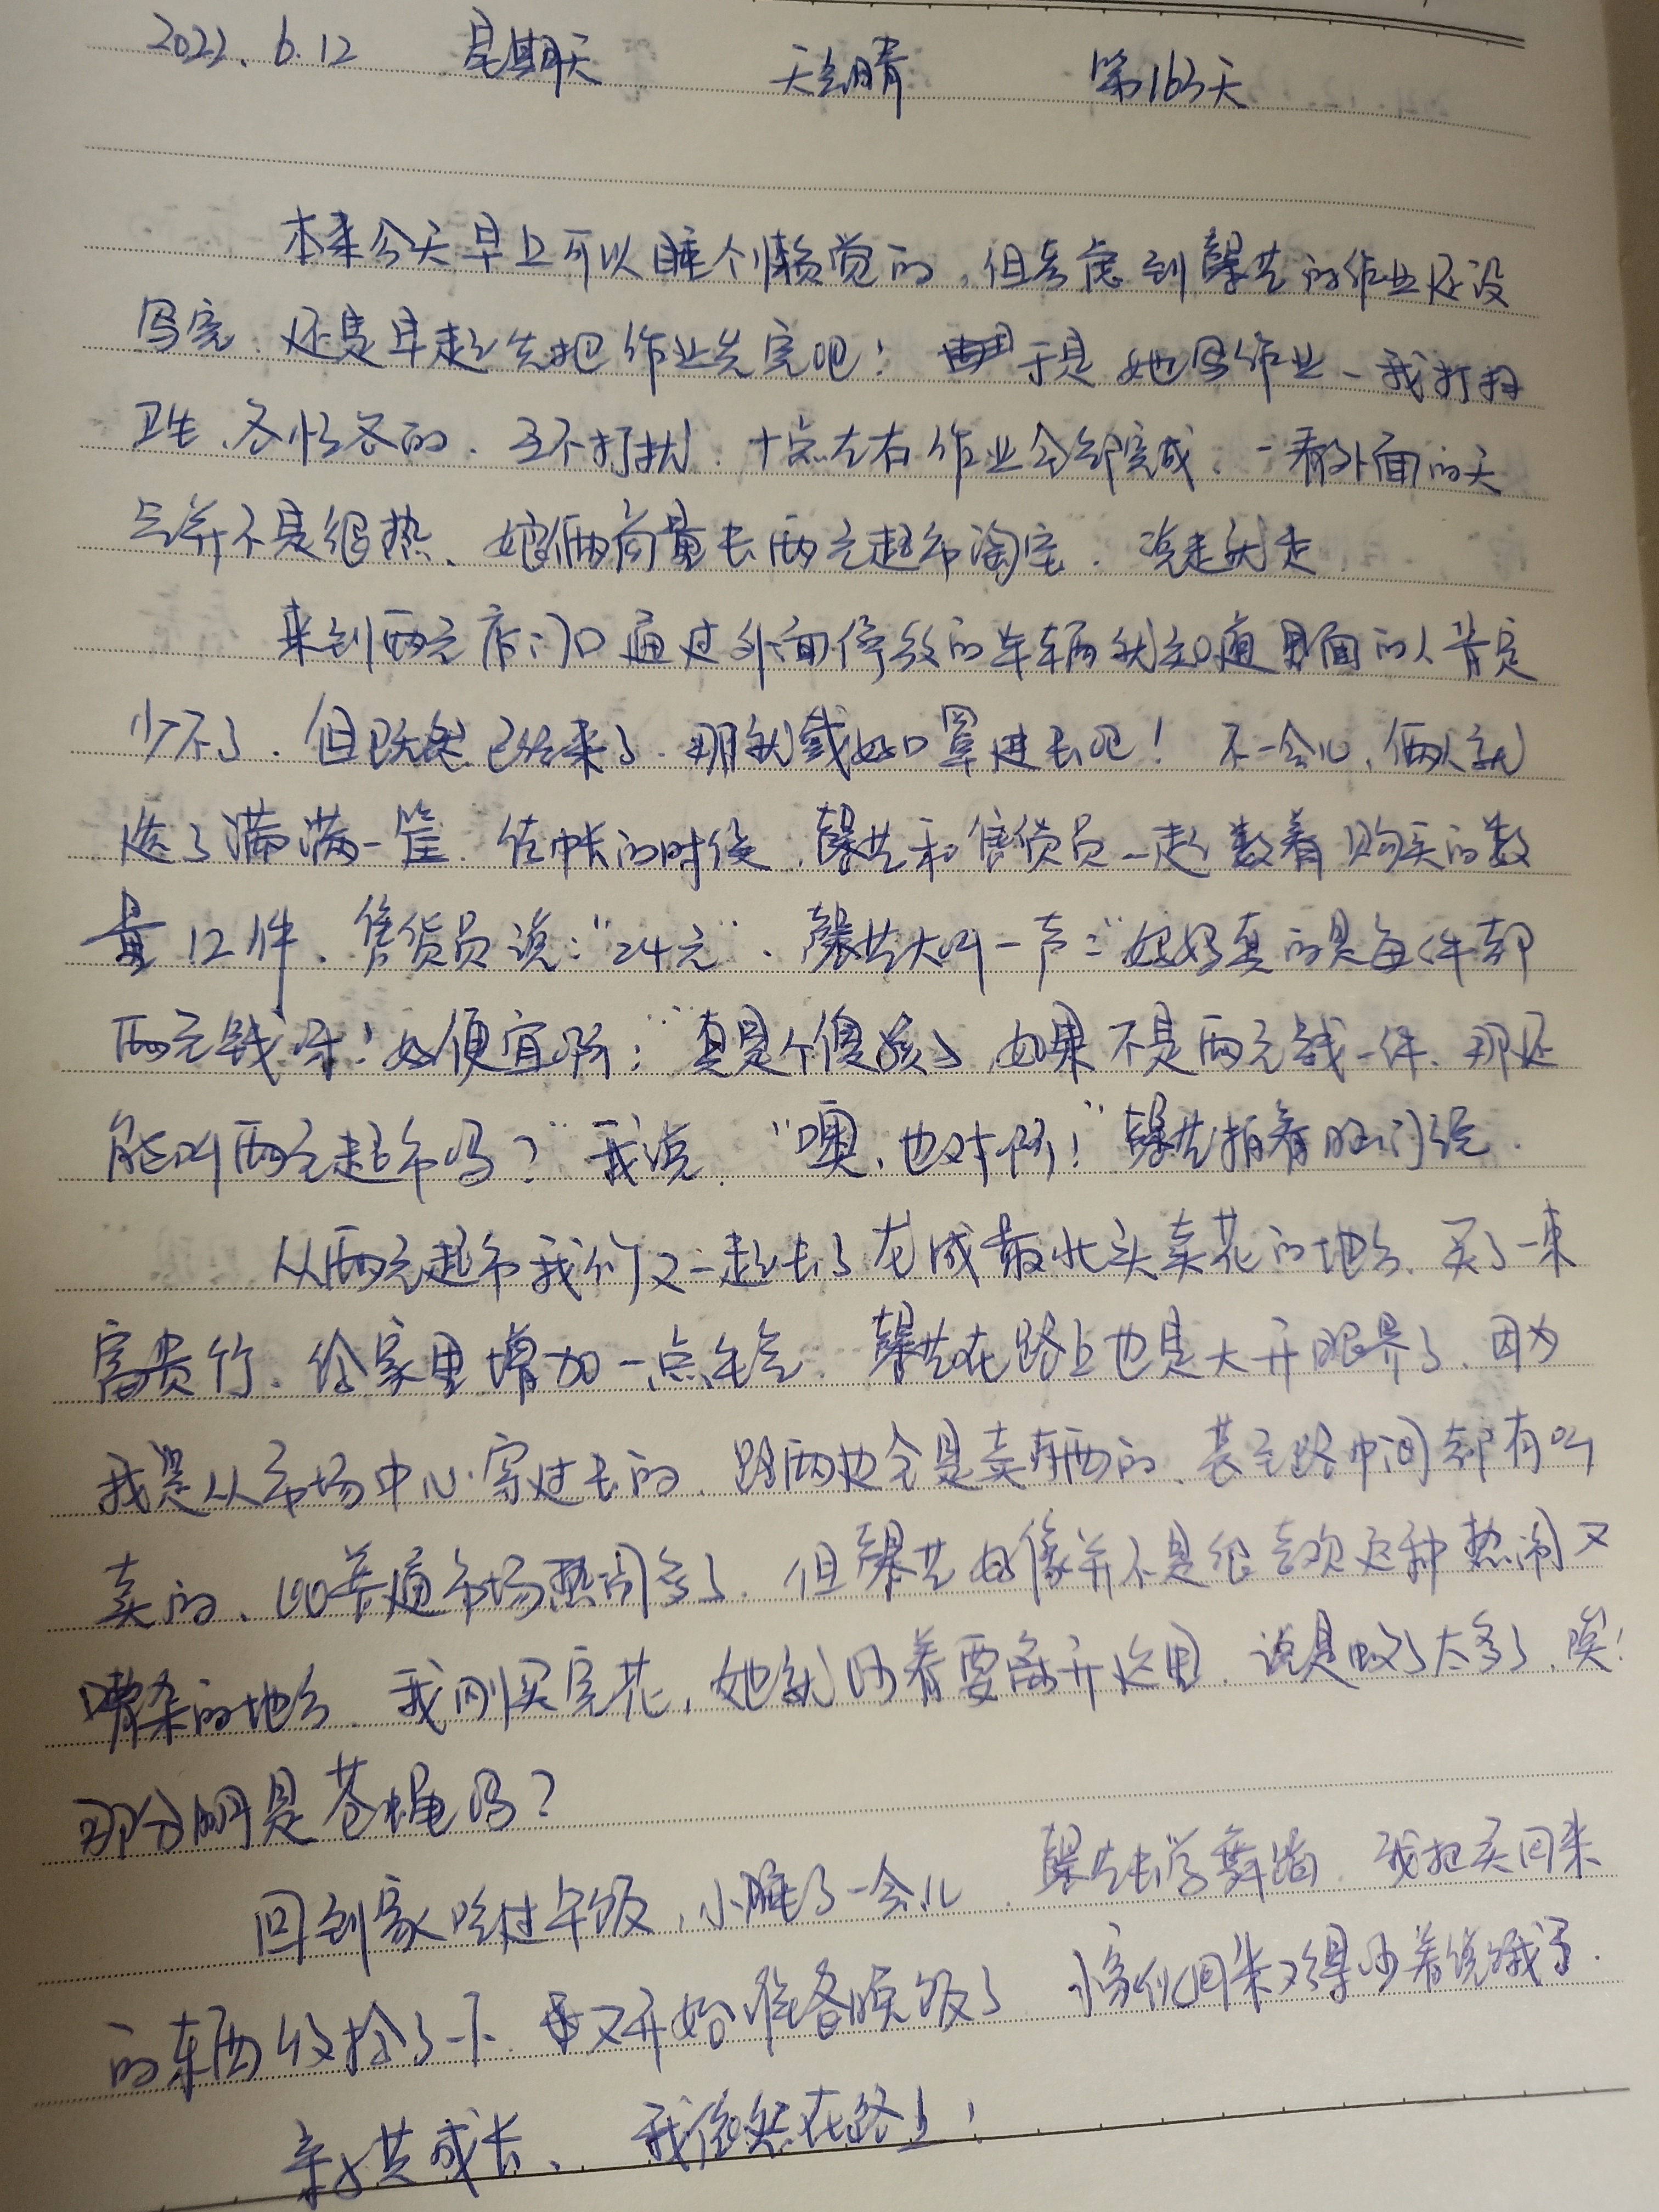 2022.6.12 星期天 天气晴 第163天
本来今天早上可以睡个懒觉的,但考虑到馨艺的作业还没
写完、还是早起先把作业先完吧! 于是她写作业、我打扫
卫生、各忙各的、互不打扰、十点左右作业全部完成、一看外面的天
气并不是很热、娘俩商量去两元超市淘宝、说走就走
来到两元店门口通过外面停放的车辆就知道里面的人肯定
少不了、但既然已经来了、那就戴好口罩进去吧! 不一会儿,俩人就
选了满满一筐、结帐的时候、馨艺和售货员一起数着购买的数
量12件、售货员说:"24元"、馨艺大叫一声:"妈妈真的是每件都
两元钱呀!好便宜啊;""真是个傻孩子如果不是两元钱一件、那还
能叫两元超市吗?"我说、"噢,也对啊!"馨艺拍着脑门说.
从两元超市我们又一起去了龙城最北头卖花的地方、买了一束
富贵竹、给家里增加一点生气、馨艺在路上也是大开眼界了、因为
我是从市场中心穿过去的、路两边全是卖东西的、甚至路中间都有叫
卖的、比普通市场热闹多了、但馨艺好像并不是很喜欢这种热闹又
嘈杂的地方、我刚买完花,她就吵着要离开这里、说是蚊子太多了、唉!
那分明是苍蝇吗?
回到家吃过午饭、小睡了一会儿、馨艺去学舞蹈、我把买回来
的东西收拾了一下、又开始准备晚饭了 小家伙回来又得吵着说饿了.
亲子共成长、我依然在路上!